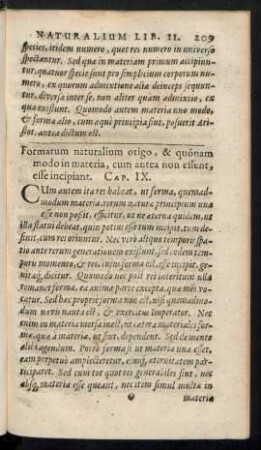 NATURALIUM LIB. II. 209
species, itidem numero, quot res numero in universo
spectantur. Sed quæ in materiam primum accipiun-
tur, quatuor specie sunt pro simplicium corporum nu-
mero, ex quorum admixtione aliæ deinceps sequun-
tur, diversæ inter se, non aliter quàm admixtio, ex
qua existunt. Quomodo autem materia uno modo,
& forma alio, cum æquè principia sint, posuerit Ari-
stot. antea dictum est.
Formarum naturalium origo, & quónam
modo in materia, cum antea non essent,
esse incipiant. CAP. IX.
CUm autem ita res habeat, ut forma, quemad-
modum materia, rerum naturæ principium una
esse non possit, efficitur, ut nec æterna quidem, ut
illa statui debeat, quin potius esse tum incipit, tum de-
sinit, cum res oriuntur. Nec verò alquo temporis spa-
tio ante rerum generationem existunt, sed eodem tem-
poris momento, & res, cujus forma est, esse incipit, gi-
nitaq́ dicitur. Quomodo nec post rei interitum ulla
romanet forma, ea anima parte excepta, quæ mẽs vo-
catur. Sed hæc propriè forma non est, nisi quemadmo-
dum navis nauta est, & exercitus Imperator. Nec
enim in materia versa inest, ut cæteræ materiales for-
mæ, quæ à materia, ut sint, dependent. Sed de mente
alibi agendum. Porrò forma si ut materia una esset,
eam perpetuò amplecteretur, eimq́, æternitatem par-
ticiparet. Sed cum tot quot res generabiles sint, nec
absq́, materia esse queant, nec item simul multæ in
O
materia